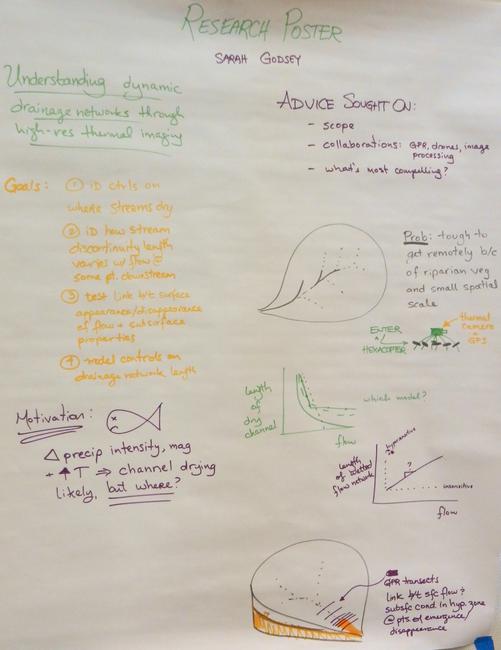 RESEARCH POSTER
SARAH GODSEY
Understanding dynamic
drainage networks through
high-res thermal imaging
ADVICE SOUGHT ON:
- scope
- collaborations: GPR, drones, image
processing
- what's most compelling?
Goals:
① ID ctrls on
where streams dry
② ID how stream
discontinuity length
varies w/ flow @
some pt. downstream
③ test link b/t surface
appearance/disappearance
of flow + subsurface
properties
④ model controls on
drainage network length
Prob: tough to
get remotely b/c
of riparian veg
and small spatial
scale
ENTER
HEXACOPTER
thermal
camera
+ GPS
Motivation:
Δ precip intensity, mag
+ ↑T ⇒ channel drying
likely, but where?
length
of
dry
channel
flow
which model?
length of wetted
flow network
?
insensitive
flow
GPR transects
link b/t sfc flow &
subsfc cond in hyp. zone
@ pts of emergence/
disappearance